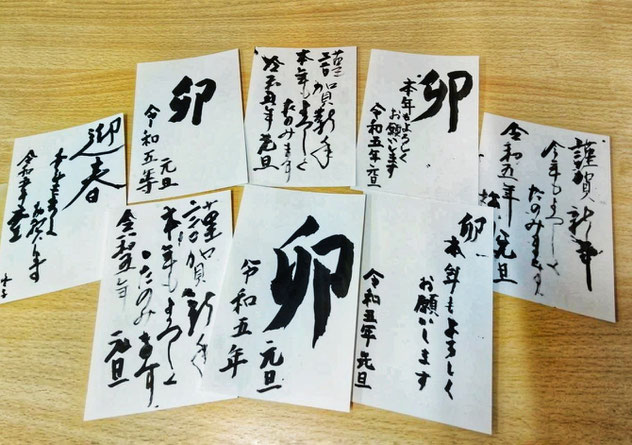 迎春
令和五年
卯
令和五年
元旦
謹賀新年
本年もよろしく
たのみます
令和五年元旦
卯
本年もよろしく
お願いします
令和五年元旦
謹賀新年
今年もよろしく
たのみます
令和五年
元旦
謹賀新年
本年もよろしく
たのみます
令和五年
元旦
卯
令和五年
元旦
卯
本年もよろしく
お願いします
令和五年元旦